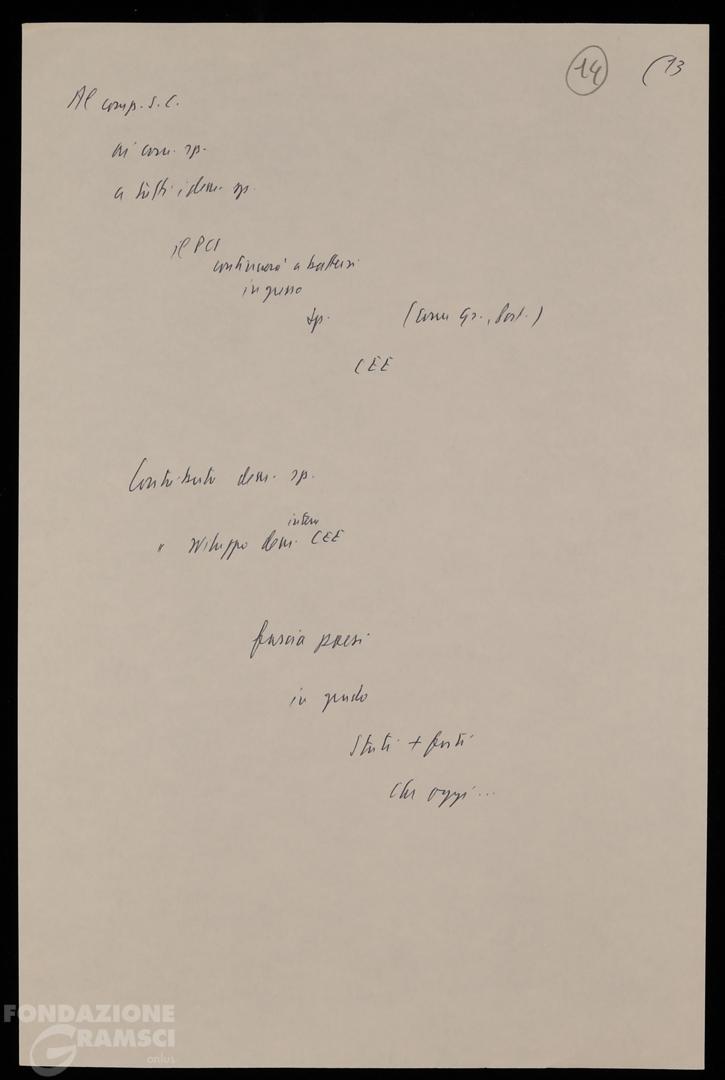 14 (13
Al comp. S. C.
ai com. sp.
a tutti i dem. sp.
il PCI
continuerà a battersi
ingresso
Sp. (come Gr., Port.)
CEE
Contributo dem. sp.
intera
" sviluppo dem. CEE
fascia paesi
in grado
Stati + forti
che oggi...
FONDAZIONE
GRAMSCI
onlus